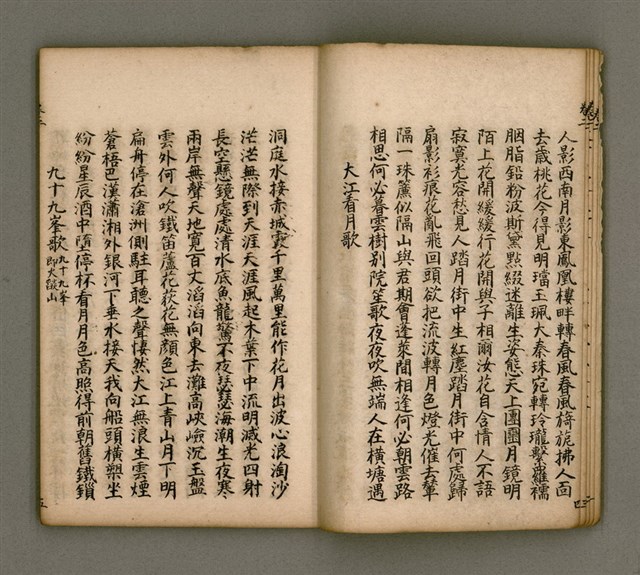 人影西南月影東鳳凰樓畔轉春風春風旖旎拂人面
去歲桃花今得見明璫玉珮大秦珠宛轉玲瓏繫羅襦
胭脂鉛粉波斯黛點綴迷離生姿態天上團團月鏡明
陌上花開緩緩行花開與子相爾汝花自含情人不語
寂寞光容愁見人踏月街中生紅塵踏月街中何處歸
扇影衫痕花亂飛回頭欲把流波轉月色燈光催去輦
隔一珠簾似隔山與君期會蓬萊間相逢何必朝雲路
相思何必暮雲樹別院笙歌夜夜吹無端人在橫塘遇
大江看月歌
洞庭水接赤城霞千里萬里能作花月出波心浪淘沙
茫茫無際到天涯天涯風起木葉下中流明滅光四射
長空懸鏡處處清水底魚龍驚不夜瑟瑟海潮生夜寒
兩岸無聲天地寬百丈滔滔向東去灘高峽嶮沉玉盤
雲外何人吹鐵笛蘆花荻花無顏色江上青山月下明
扁舟停在滄洲側駐耳聽之聲悽然大江無浪生雲煙
蒼梧巴漢瀟湘外銀河下垂水接天我向船頭橫槊坐
紛紛星辰酒中墮停杯看月月色高照得前朝舊鐵鎖
九十九峯歌 九十九峯即火燄山